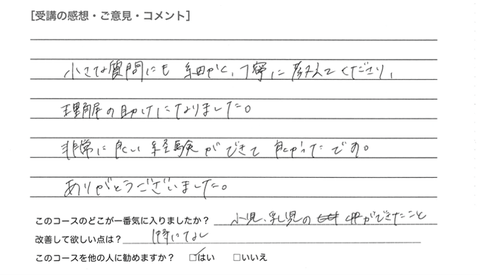 [受講の感想・ご意見・コメント]
小さな質問にも 細かく、丁寧に 教えてくださり、
理解の助けになりました。
非常に良い経験ができて 良かったです。
ありがとうございました。
このコースのどこが一番気に入りましたか? 小児、乳児の ができたこと
改善して欲しい点は? 特になし
このコースを他の人に勧めますか? ☑はい □いいえ